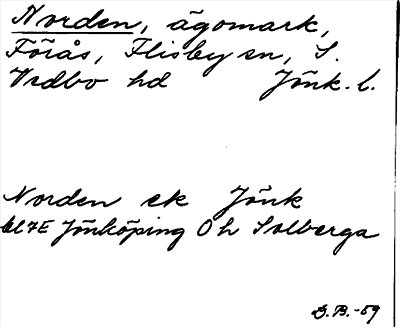 Norden, ägomark,
Förås, Flisby sn, S.
Vedbo hd Jönk. l.
Norden ek Jönk
bl 7E Jönköping Oh Solberga
D.B.-59